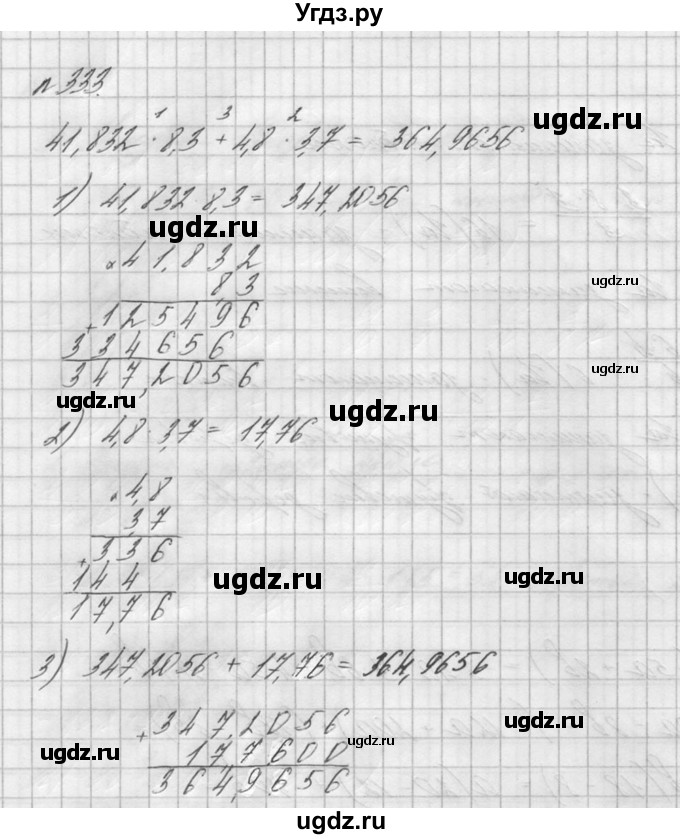 Угдз.ру
№333.
1 3 2
41,832 · 8,3 + 4,8 · 3,7 = 364,9656
ugdz.ru
1) 41,832 8,3 = 347,2056
ugdz.ru
× 41,832
ugdz.ru
8,3
125496
+
334656
347,2056
ugdz.ru
ugdz.ru
ugdz.ru
2) 4,8 · 3,7 = 17,76
× 4,8
ugdz.ru
3,7
+ 336
144
ugdz.ru
ugdz.ru
17,76
3) 347,2056 + 17,76 = 364,9656
+ 347,2056
ugdz.ru
ugdz.ru
177600
ugdz.ru
364,9656
ugdz.ru
ugdz.ru